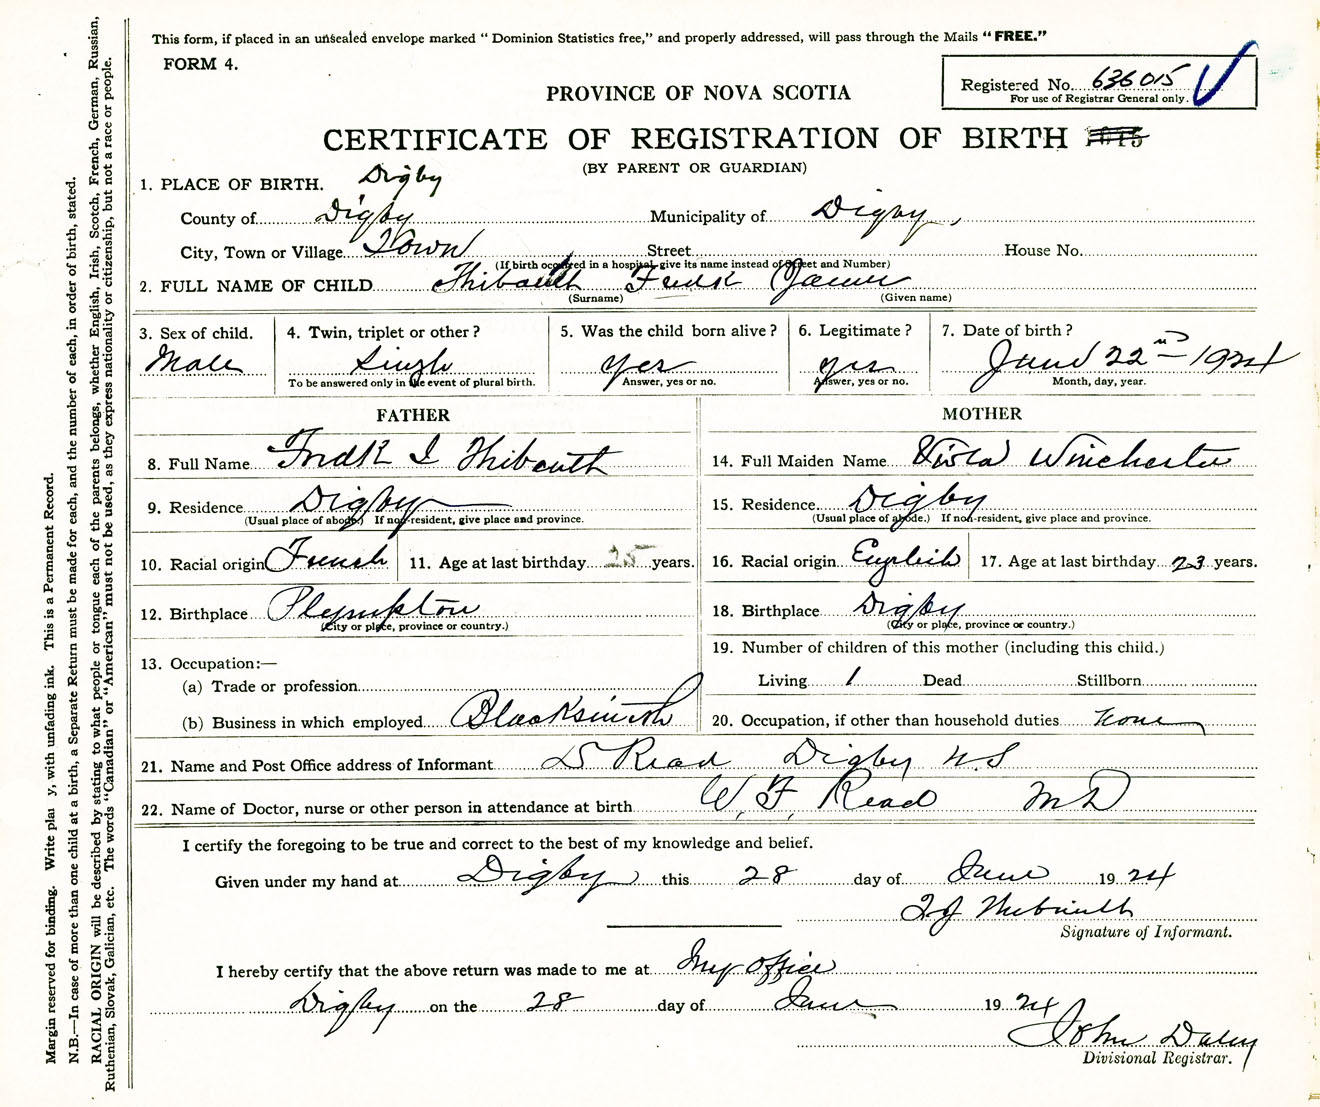 This form, if placed in an unsealed envelope marked " Dominion Statistics free," and properly addressed, will pass through the Mails " FREE."
FORM 4.
Registered No. 636015
For use of Registrar General only.
PROVINCE OF NOVA SCOTIA
CERTIFICATE OF REGISTRATION OF BIRTH
(BY PARENT OR GUARDIAN)
1. PLACE OF BIRTH. Digby
County of Digby Municipality of Digby,
City, Town or Village Town Street House No.
(If birth occurred in a hospital, give its name instead of Street and Number)
2. FULL NAME OF CHILD Thibault Fredk James
(Surname) (Given name)
3. Sex of child. 4. Twin, triplet or other ? 5. Was the child born alive ? 6. Legitimate ? 7. Date of birth ?
Male Single yes yes June 22nd 1924
To be answered only in the event of plural birth. Answer, yes or no. Answer, yes or no. Month, day, year.
FATHER MOTHER
8. Full Name Fredk J Thibault 14. Full Maiden Name Viola Winchester
9. Residence Digby 15. Residence Digby
(Usual place of abode.) If non-resident, give place and province. (Usual place of abode.) If non-resident, give place and province.
10. Racial origin French 11. Age at last birthday 25 years. 16. Racial origin English 17. Age at last birthday 23 years.
12. Birthplace Plympton 18. Birthplace Digby
(City or place, province or country.) (City or place, province or country.)
13. Occupation:— 19. Number of children of this mother (including this child.)
(a) Trade or profession Living 1 Dead Stillborn
(b) Business in which employed Blacksmith 20. Occupation, if other than household duties none
21. Name and Post Office address of Informant Read Digby N.S
22. Name of Doctor, nurse or other person in attendance at birth W. F. Read MD
I certify the foregoing to be true and correct to the best of my knowledge and belief.
Given under my hand at Digby this 28 day of June 1924
Thibault
Signature of Informant.
I hereby certify that the above return was made to me at My office
Digby on the 28 day of June 1924
John Daley
Divisional Registrar.
Margin reserved for binding. Write plai y, with unfading ink. This is a Permanent Record.
N.B.—In case of more than one child at a birth, a Separate Return must be made for each, and the number of each, in order of birth, stated.
RACIAL ORIGIN will be described by stating to what people or tongue each of the parents belongs, whether English, Irish, Scotch, French, German, Russian,
Ruthenian, Slovak, Galician, etc. The words "Canadian" or "American" must not be used, as they express nationality or citizenship, but not a race or people.